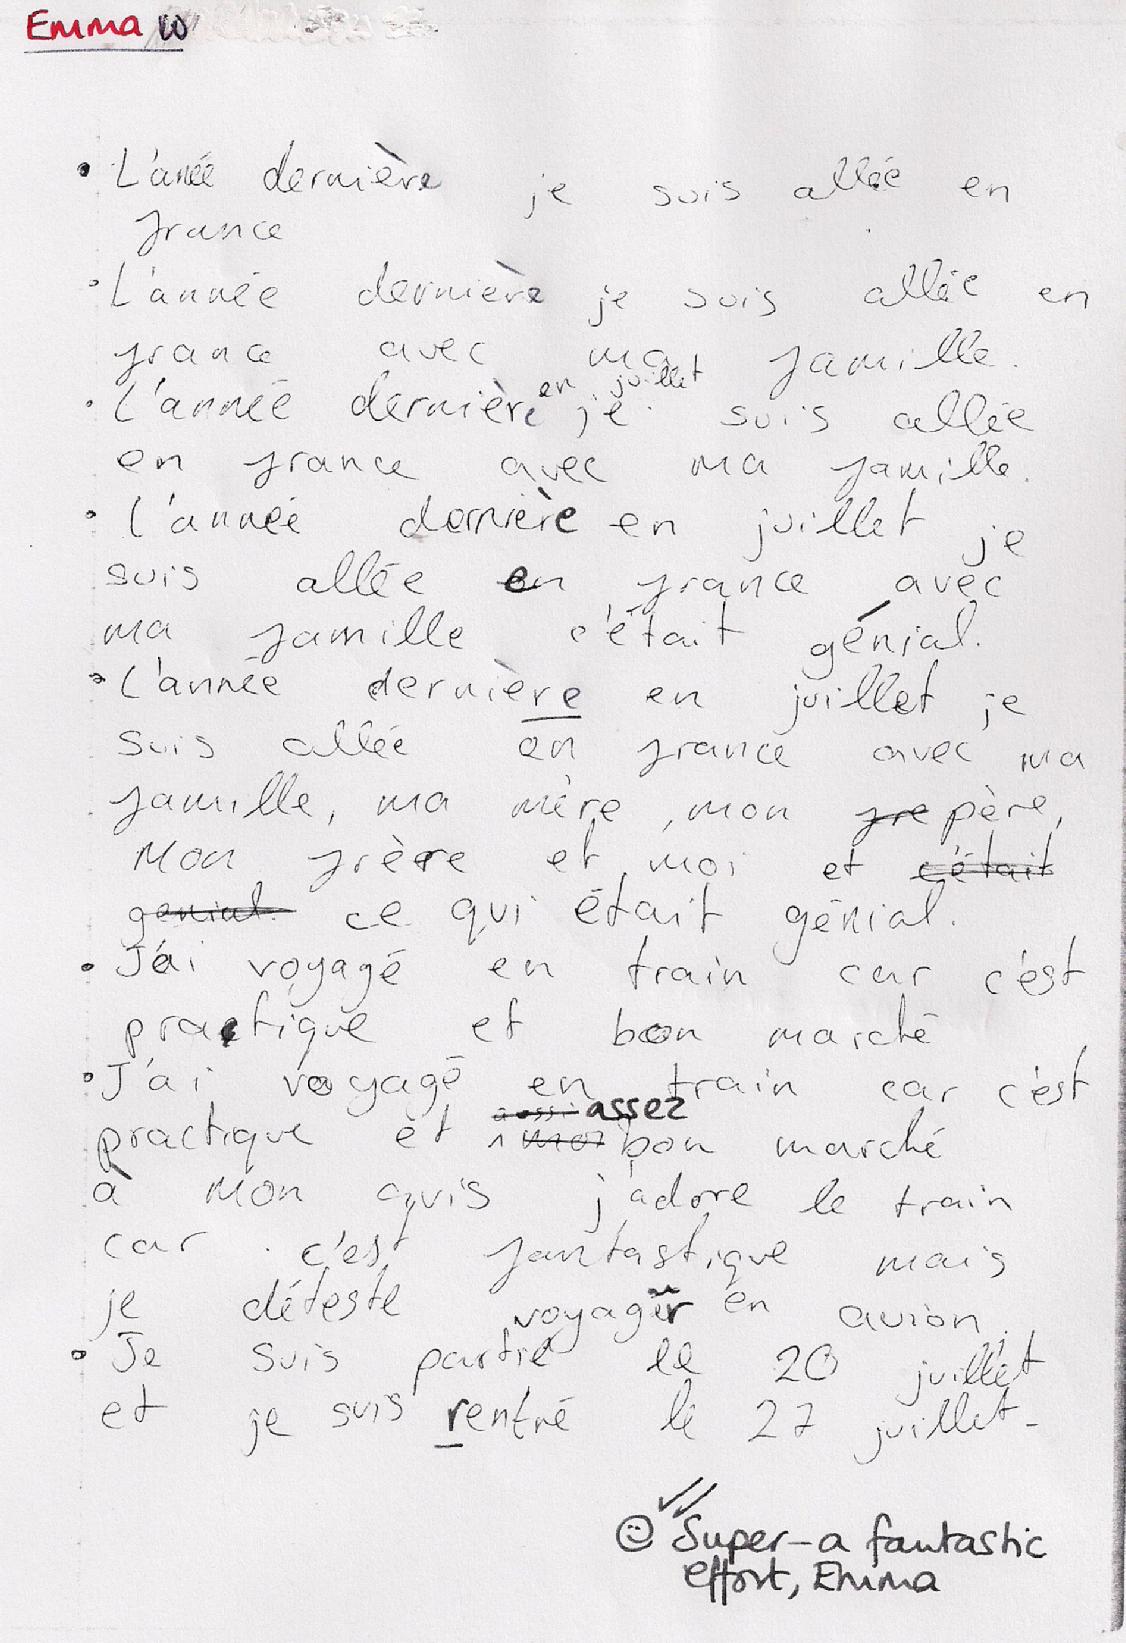 Emma W
• L'anée dernière je suis allée en
france
• L'année dernière je suis allée en
france avec ma famille.
en juillet
• L'année dernière je suis allée
en france avec ma famille.
• L'année dernière en juillet je
suis allée en france avec
ma famille c'était génial.
• L'année dernière en juillet je
suis allée en france avec ma
famille, ma mère, mon fre père,
Mon frère et moi et c'était
genial ce qui était génial.
• J'ai voyagé en train car c'est
practique et bon marché
• J'ai voyagé en train car c'est
aussi assez
practique et bon marché
à mon avis j'adore le train
car c'est fantastique mais
je déteste voyager en avion.
• Je suis partie le 20 juillet
et je suis rentré le 27 juillet.
Super - a fantastic
effort, Emma